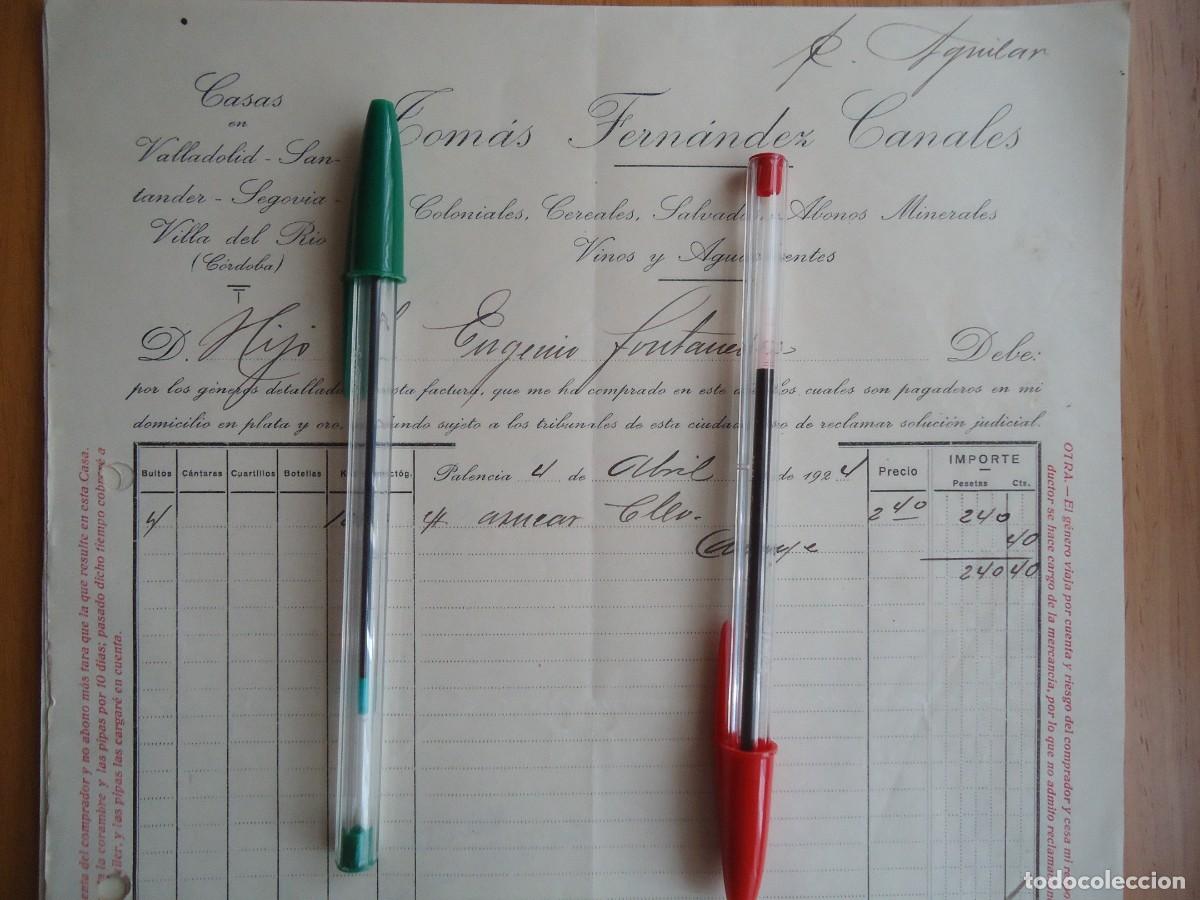 Aguilar
Casas
en
Valladolid - San-
tander - Segovia -
Villa del Rio
(Córdoba)
Tomás Fernández Canales
Coloniales, Cereales, Abonos Minerales
Vinos y
D. Hijo Eugenio Debe:
por los géneros factura, que me ha comprado en este cuales son pagaderos en mi
domicilio en plata y oro, sujeto a los tribunales de esta de reclamar solución judicial.
Bultos Cántaras Cuartillos Botellas Precio IMPORTE
Pesetas Cts.
Palencia 4 de Abril de 1924
4 azucar 2 40 240
40
240 40
del comprador y no abono más tara que la que resulte en esta Casa.
la corambre y las pipas por 10 días; pasado dicho tiempo cobraré a
y las pipas las cargaré en cuenta.
OTRA.—El género viaja por cuenta y riesgo del comprador y cesa mi
ductor se hace cargo de la mercancía, por lo que no admito
todocoleccion